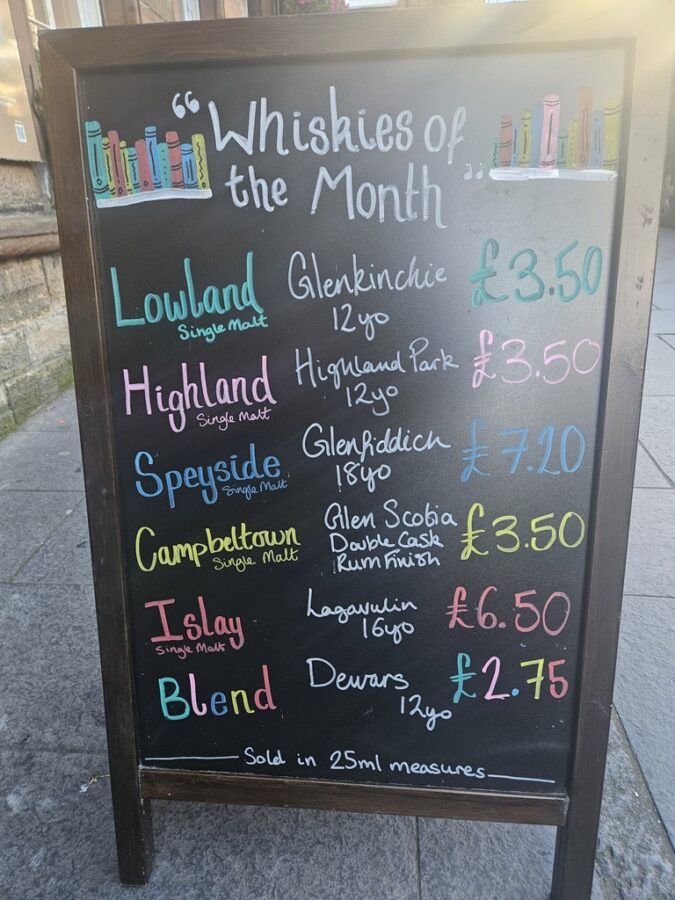 “Whiskies of
the Month”
Lowland Glenkinchie £3.50
Single Malt 12yo
Highland Highland Park £3.50
Single Malt 12yo
Speyside Glenfiddich £7.20
Single Malt 18yo
Campbeltown Glen Scotia £3.50
Single Malt Double Cask
Rum Finish
Islay Lagavulin £6.50
Single Malt 16yo
Blend Dewars £2.75
12yo
Sold in 25ml measures